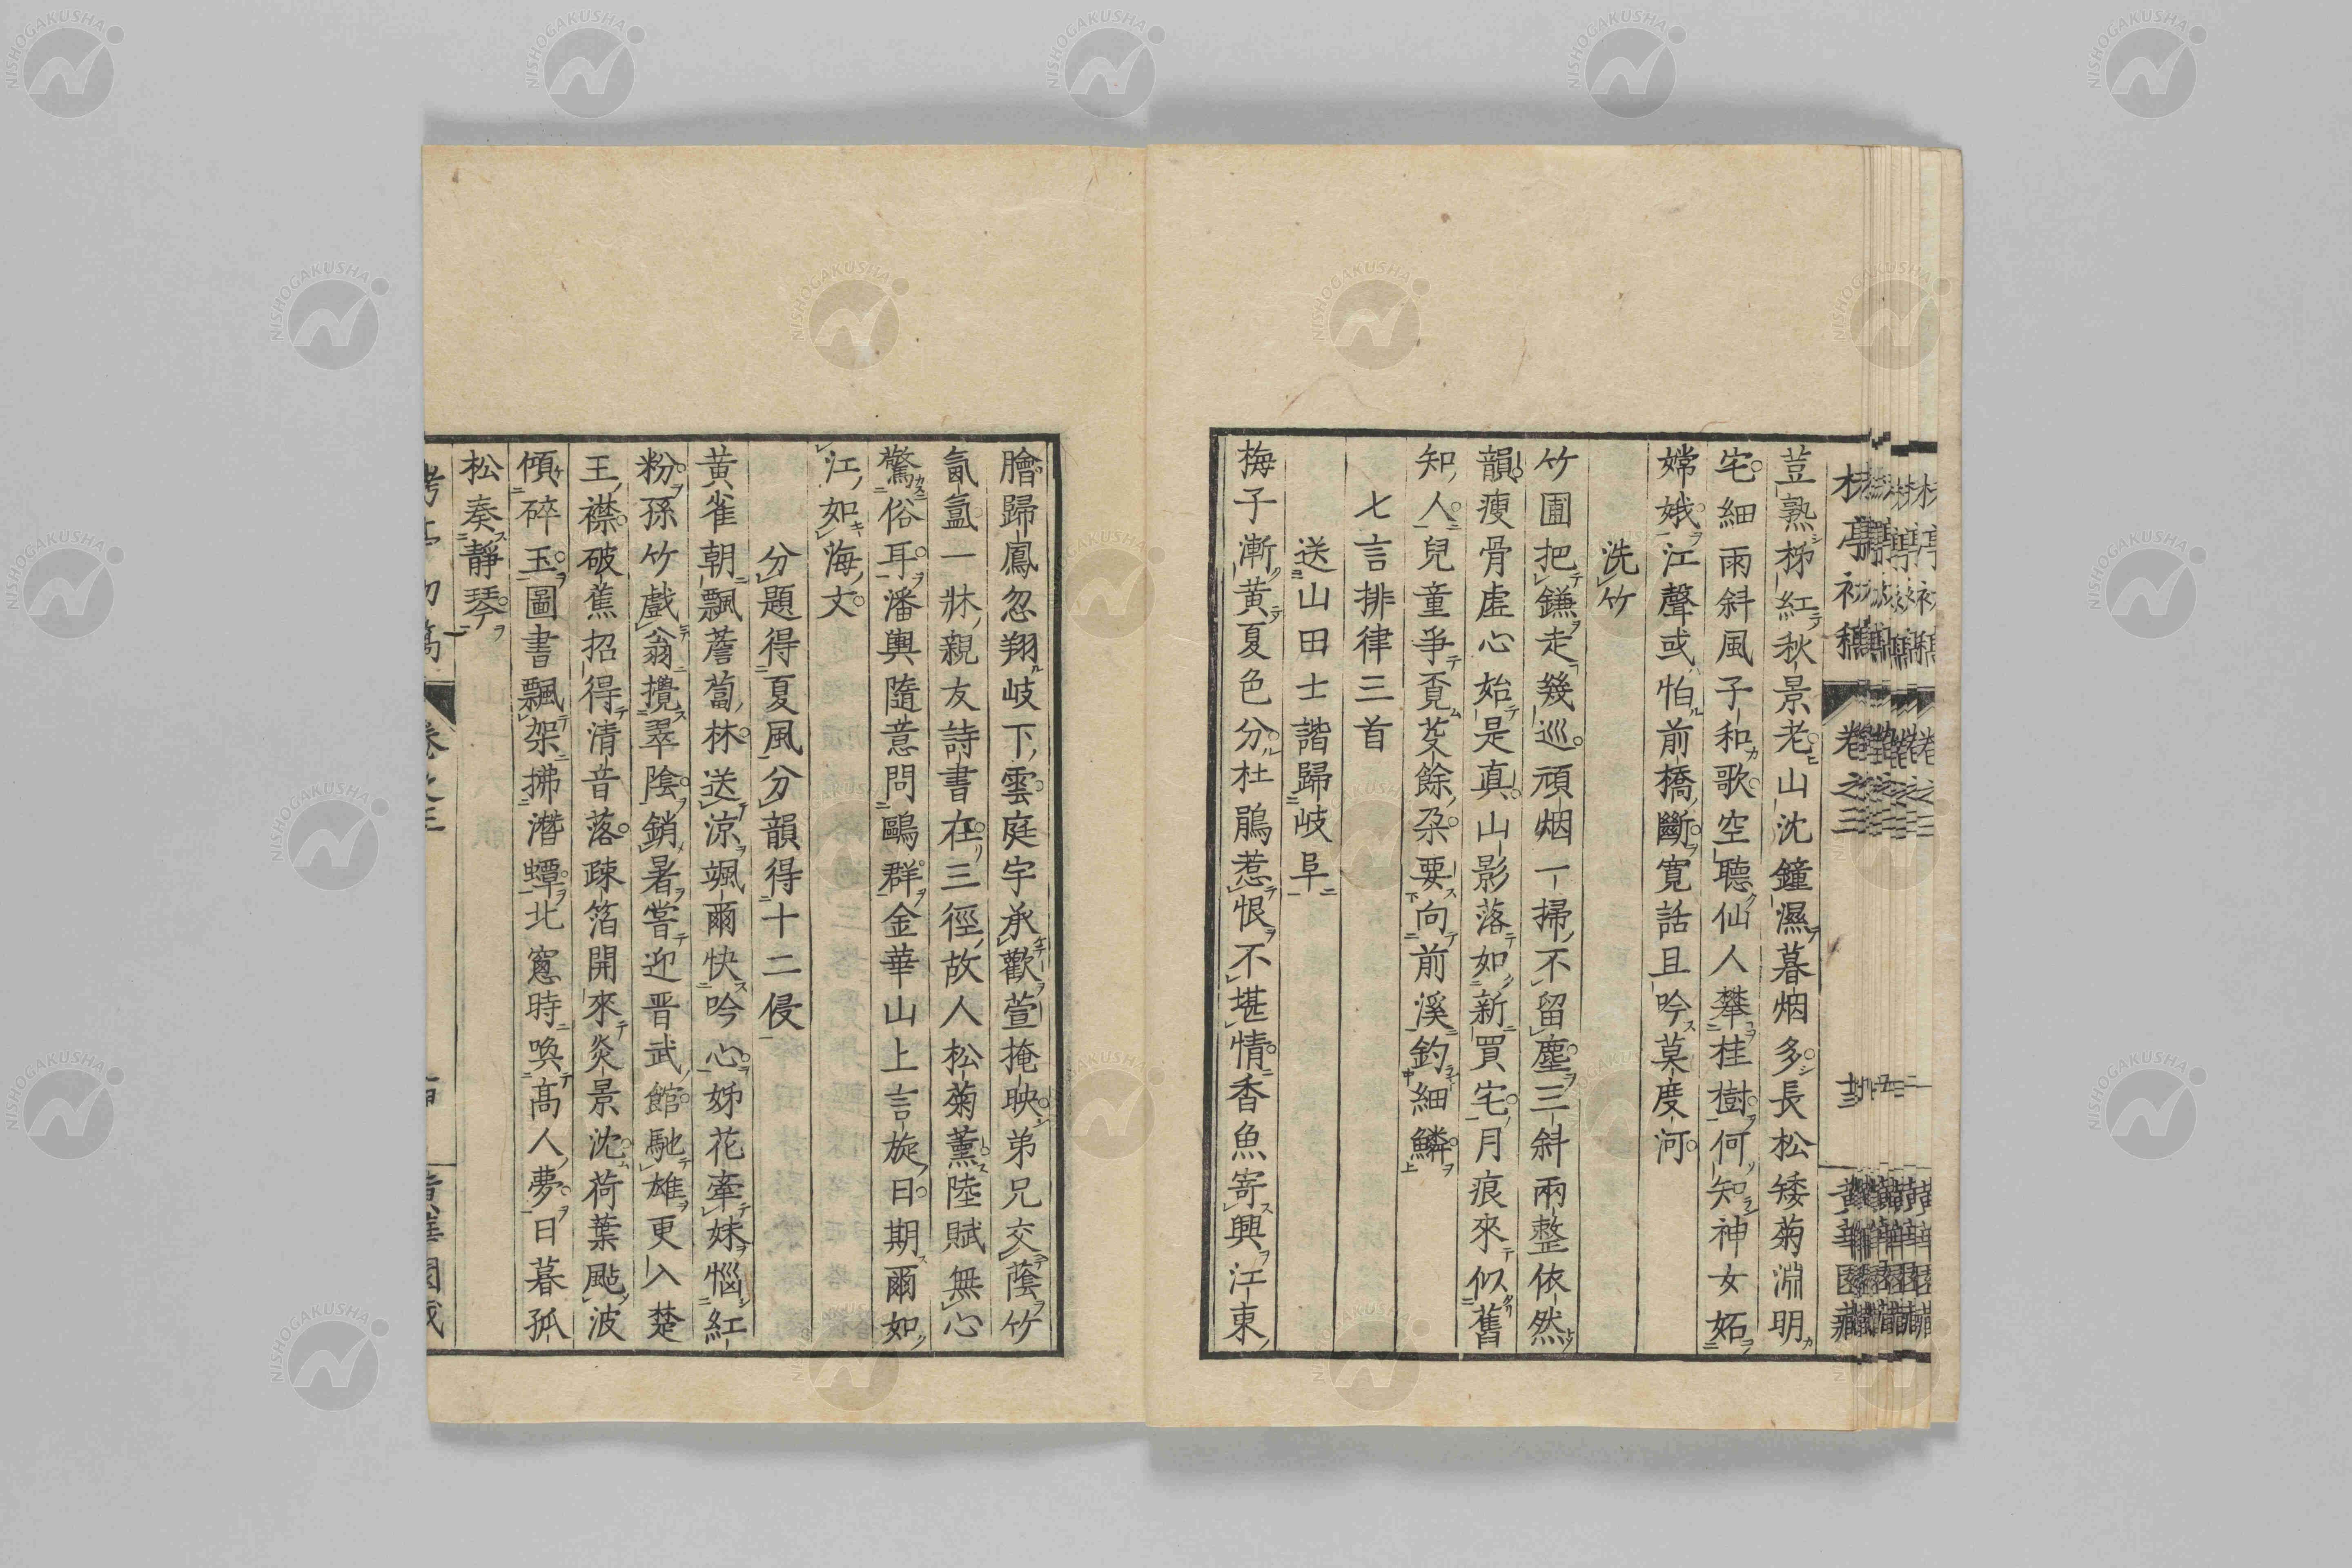 荳熟梯紅秋景老山沈鐘濕暮烟多長松矮菊淵明
宅細雨斜風子和歌空聽仙人攀桂樹何知神女妬
嫦娥江聲或怕前橋斷寛話且吟莫度河
洗竹
竹圃把鎌走幾巡頑烟一掃不留塵三斜兩整依然
韻瘦骨虛心始是真山影落如新買宅月痕來似舊
知人兒童爭覔芟餘朶要向前溪釣細鱗
七言排律三首
送山田士諧歸岐阜
梅子漸黃夏色分杜鵑惹恨不堪情香魚寄興江東
膾歸鳳忽翔岐下雲庭宇承歡萱掩映弟兄交蔭竹
氤氳一牀親友詩書在三徑故人松菊薰陸賦無心
驚俗耳潘輿隨意問鷗群金華山上言旋日期爾如
江如海文
分題得夏風分韻得十二侵
黃雀朝飄薝蔔林送涼颯爾快吟心姊花牽妹惱紅
粉孫竹戲翁攪翠陰銷暑嘗迎晋武館馳雄更入楚
王襟破蕉招得清音落疎箔開來炎景沈荷葉颭波
傾碎玉圖書飄架拂潛蟫北窻時喚高人夢日暮孤
松奏靜琴